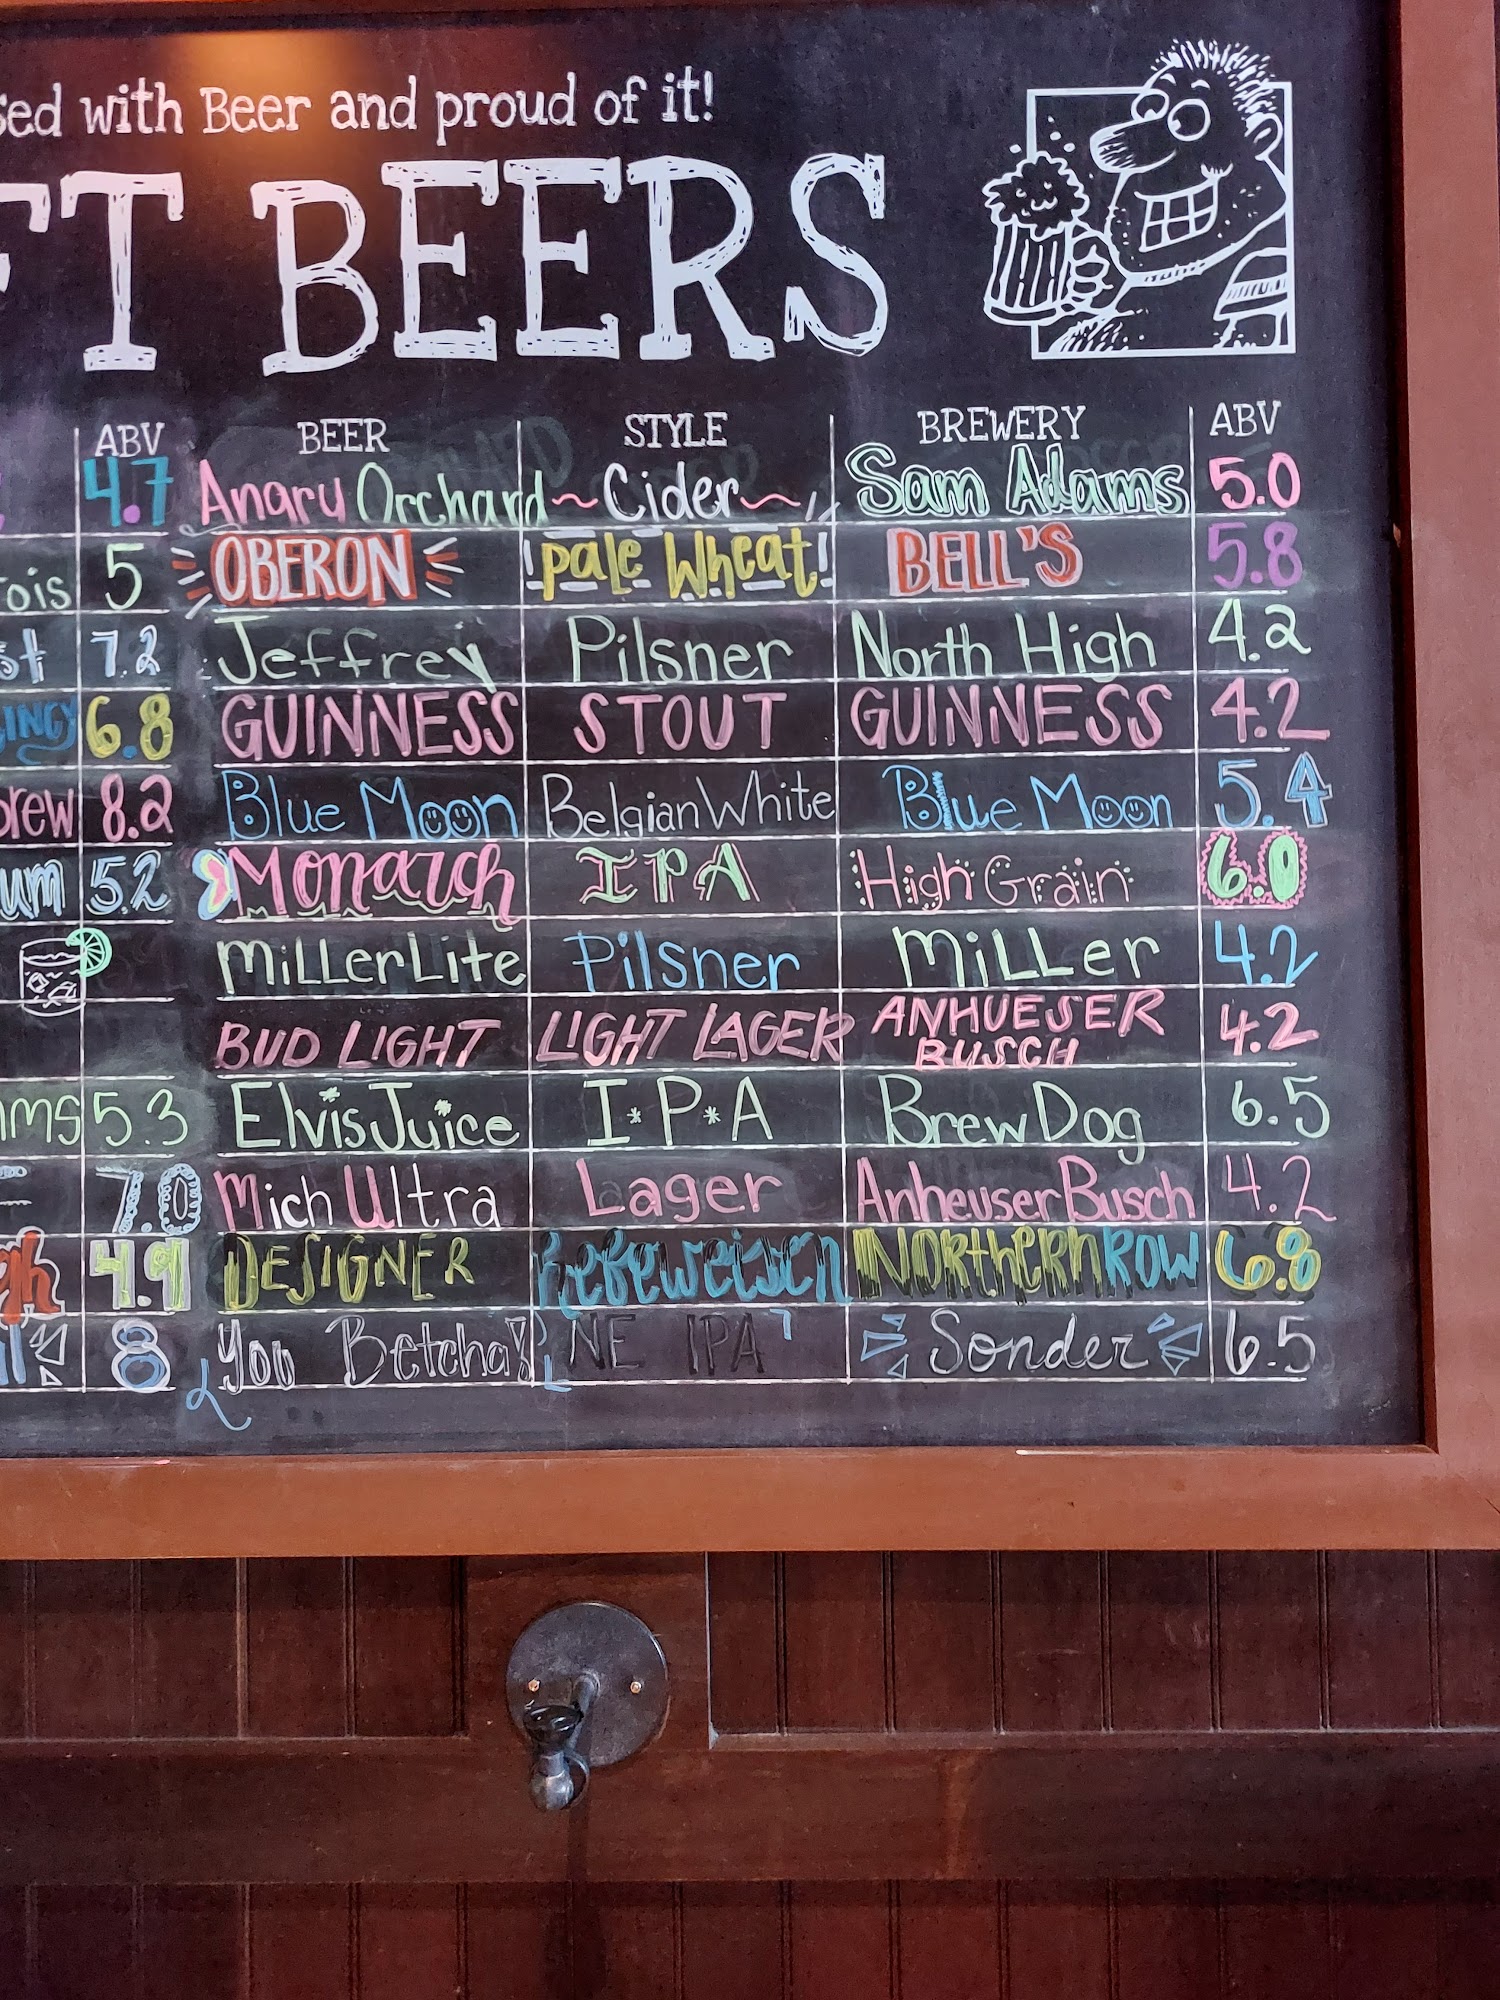 sed with Beer and proud of it!
FT BEERS
ABV BEER STYLE BREWERY ABV
4.7 Angry Orchard ~Cider~ Sam Adams 5.0
ois 5 OBERON Pale Wheat! BELL'S 5.8
st 7.2 Jeffrey Pilsner North High 4.2
6.8 GUINNESS STOUT GUINNESS 4.2
brew 8.2 Blue Moon Belgian White Blue Moon 5.4
um 5.2 Monarch IPA High Grain 6.0
Miller Lite Pilsner Miller 4.2
BUD LIGHT LIGHT LAGER ANHUESER BUSCH 4.2
ams 5.3 Elvis Juice I*P*A BrewDog 6.5
7.0 Mich Ultra Lager Anheuser Busch 4.2
gh 4.9 DESIGNER Hefeweisen Northern Row 6.8
8 You Betcha! NE IPA Sonder 6.5